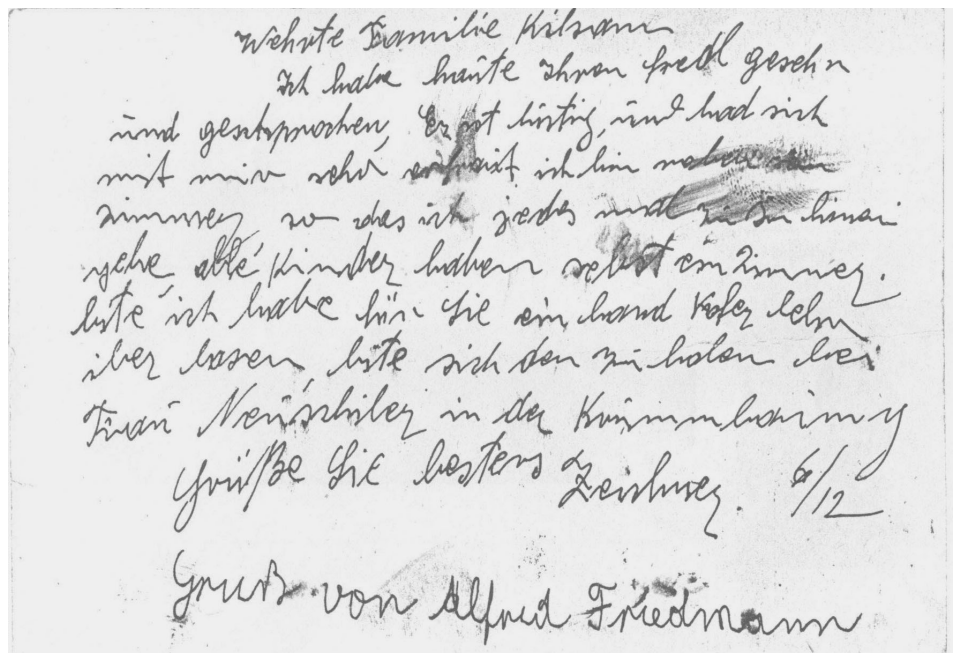 Wehrte Familie Kilsam
Ich habe haute Ihren fredl gesehn
und gesehsprochen, Er ist lustig, und had sich
mit mir sehr erfrait ich bin neben sein
zimmer so das ich jedes mal zu im hinai
gehe, alle Kinder haben selbst ein Zimmer.
bite ich habe für Sie ein hand Kofer
iber lasen, bite sich den zu holen bei
Frau Neuschiler in der Krummbaumg
Grüße Sie bestens Zeichner. 6/12
Gruß von Alfred Friedmann